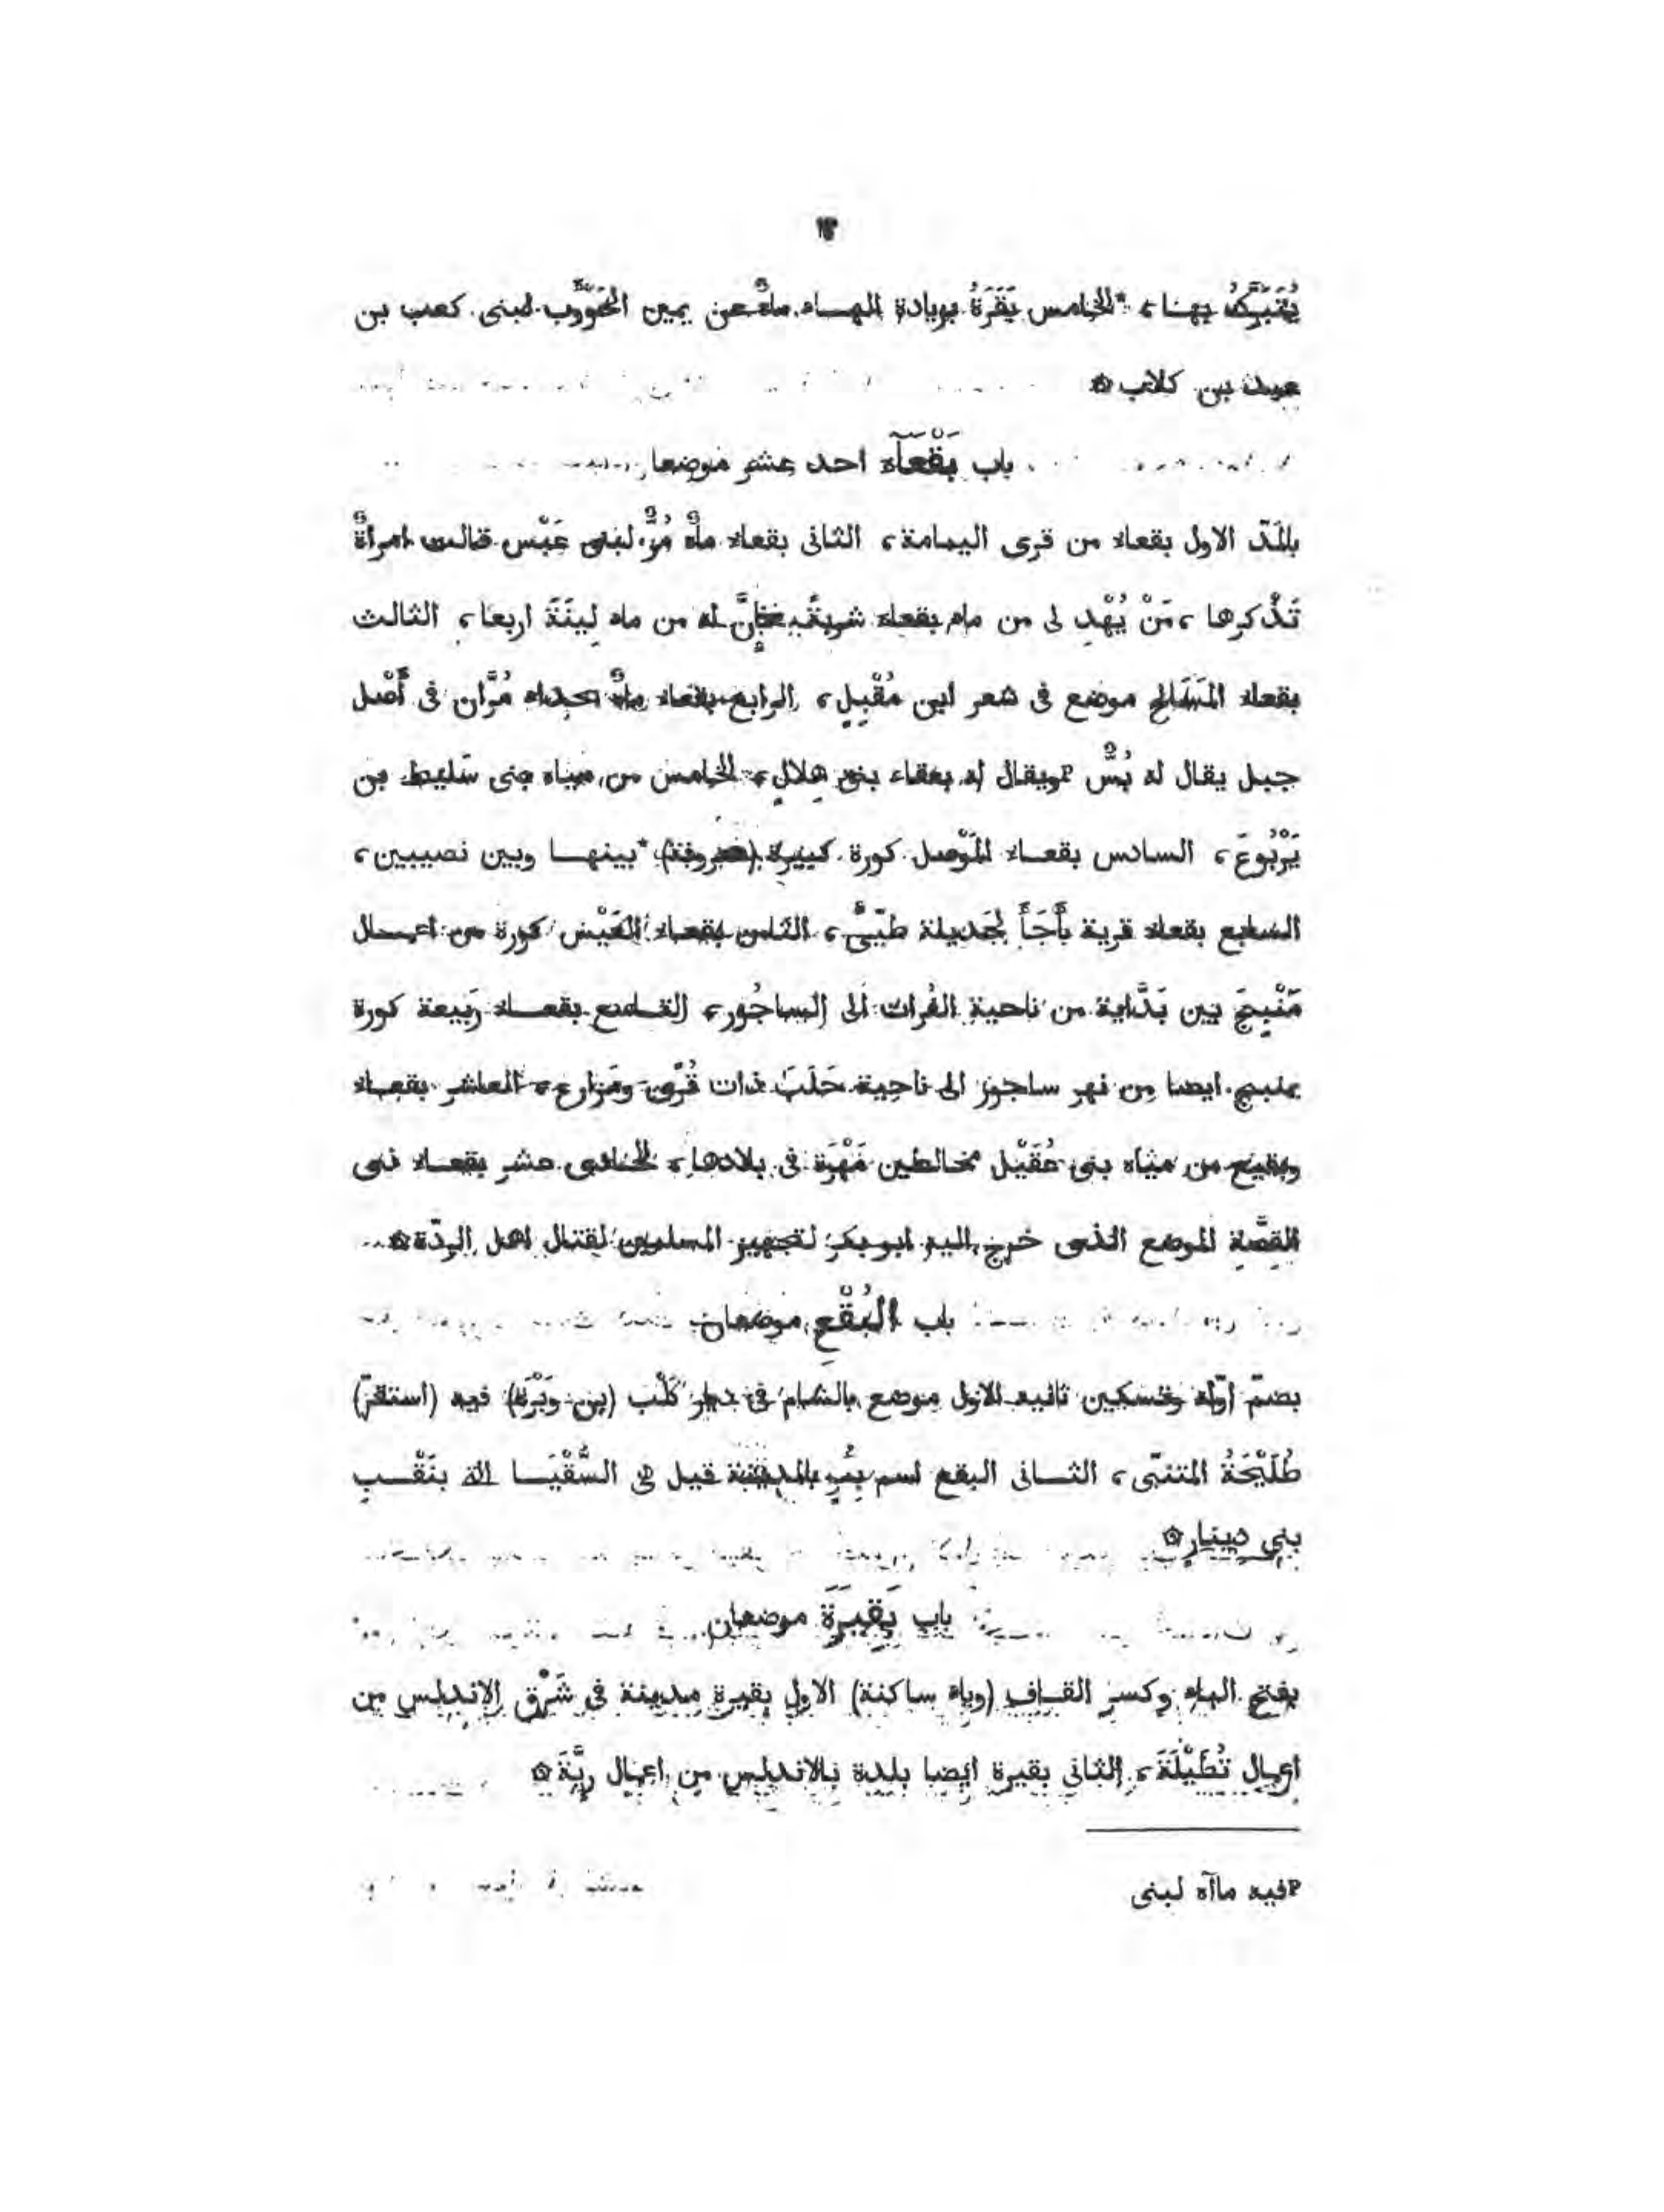 يُتَبَرَّكُ بهـا، *الخامس بَقَرَةُ بزيادة الهـاء ماءٌ عن يمين الحَوْءَب لبنى كعب بن
عبد بن كلاب ۞
باب بَقْعَآء احد عشر موضعا
بالمَدّ الاول بقعاء من قرى اليمامة، الثانى بقعاء ماءٌ مُرٌّ لبنى عَبْس قالت امراةٌ
تَذْكرها، مَنْ يُهْدِ لى من ماء بقعاء شربةً فإنَّ له من ماء لِينَةَ اربعا، الثالث
بقعاء المَسَالح موضع فى شعر ابن مُقْبِلٍ، الرابع بقعاء ماءٌ بحذاء مُرَّان فى أَصْل
جبل يقال له بُسٌّ pويقال له بقعاء بنى هِلالٍ، الخامس من مياه بنى سَليط بن
يَرْبُوعَ، السادس بقعـاء المَوْصل كورة كبيرة (معروفة) *بينهـا وبين نصيبين،
السابع بقعاء قرية بأَجَأَ لجَديلة طيّئٍ، الثامن بقعـاء العَيْص كورة من اعـمـال
مَنْبِجَ بين بَدَّاية من ناحية الفُرات الى الساجُور، التـاسع بقعـاء رَبيعة كورة
بمنبج ايضا من نهر ساجور الى ناحية حَلَبَ ذات قُرًى ومَزارع، العاشر بقعـاء
وبقيع من مياه بنى عُقَيْل مخالطين مَهْرَة فى بلادها، الحادى عشر بقعـاء ذى
القِصَّةِ الموضع الذى خرج اليه ابو بكر لتجهيز المسلمين لقتال اهل الردّة ۞
باب البُقْعِ موضعان
بضمّ اوّله وتسكين ثانيه الاول موضع بالشام فى ديار كَلْب (بن وَبْرَة) فيه (استقرّ)
طُلَيْحَةُ المتنبّى، الثـانى البقع اسم بِئْرٍ بالمدينة قيل هى السُّقْيَـا التى بنَقْـبِ
بنِى دِينارٍ ۞
باب بَقِيرَةَ موضعان
بفتح الباء وكسر القـاف (وياء ساكنة) الاول بقيرة مدينة فى شَرْق الاندلس من
اعمال تُطَيْلَةَ، الثانى بقيرة ايضا بلدة بالاندلس من اعمال رَيَّةَ ۞
pفيه ماآء لبنى